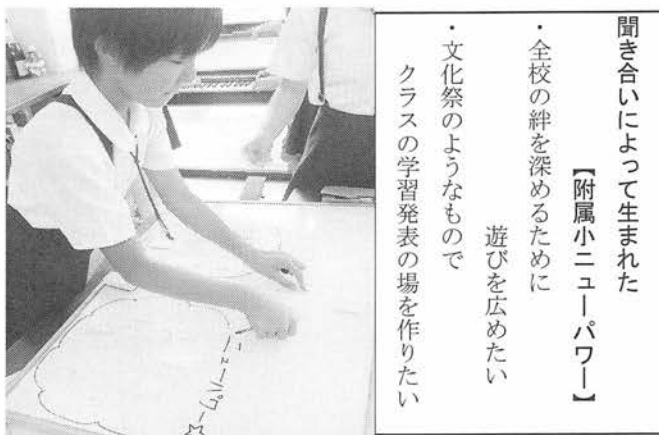 聞き合いによって生まれた
【附属小ニューパワー】
・全校の絆を深めるために
遊びを広めたい
・文化祭のようなもので
クラスの学習発表の場を作りたい